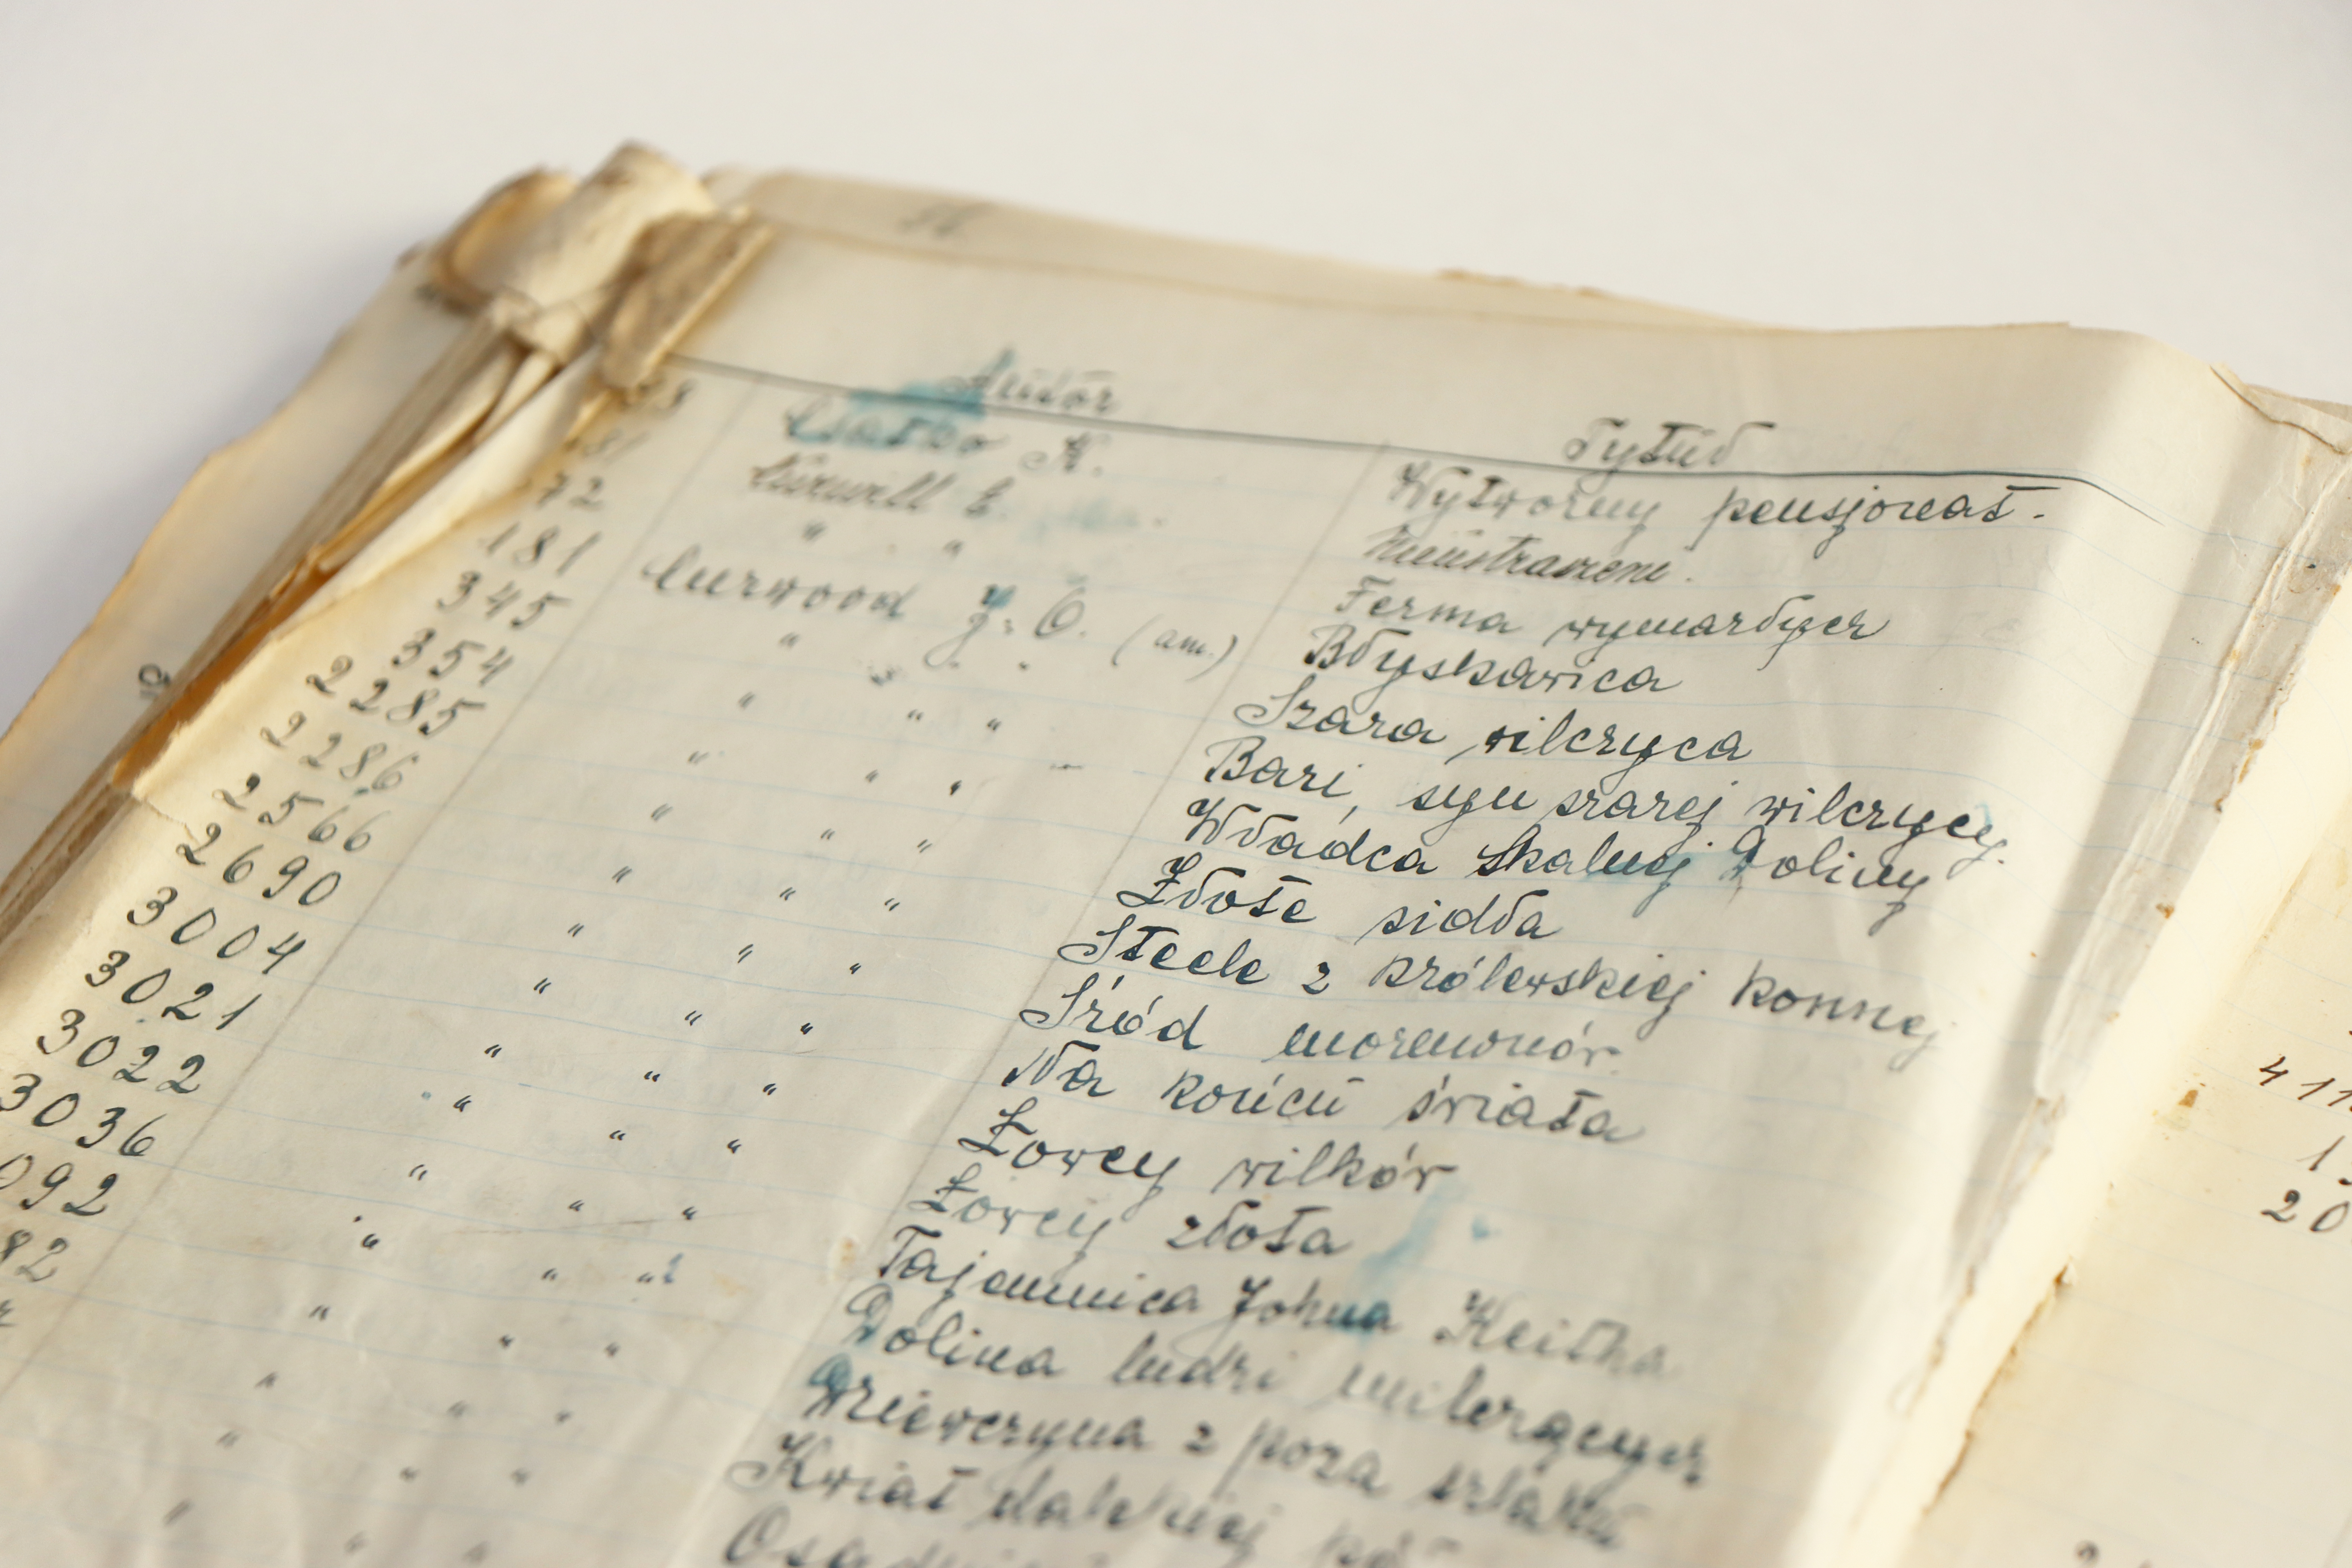 Autor Tytuł
Csatko K. Wytworny pensjonat.
181 Curwill C. Ministranci.
72 " " Ferma wymarłych
181 Curwood J. O. (am.) Błyskawica
345 " " " Szara wilczyca
354 " " " Bari, syn szarej wilczycy.
2285 " " " Władca Skalnej Doliny
2286 " " " Złote sidła
2566 " " " Steele z królewskiej konnej
2690 " " " Śród morenonów
3004 " " " Na końcu świata
3021 " " " Łowcy wilków
3022 " " " Łowcy złota
3036 " " " Tajemnica Johna Keitha
092 " " " Dolina ludzi milczących
82 " " " Dziewczyna z poza szlaku
" " " Kwiat dalekiej
411
1
20